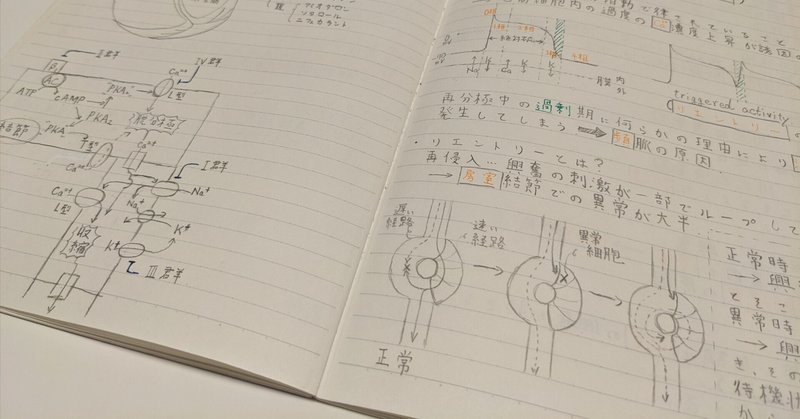 アミオダロン
ソタロール
ニフェカラント
II群
β1
AC
ATP
cAMP
PKA
PKA
PKA
IV群
Ca²⁺
L型
結節
T型
Ca²⁺
Ca²⁺
I群
Ca²⁺
L型
Na⁺
Na⁺
K⁺
K⁺
収縮
III群
細胞内の過度の
濃度上昇が誘因の
絶対不応
Na
Ca
K
膜
内
外
triggered activity
リエントリー
再分極中の過剰期に何らかの理由により
発生してしまう
頻脈の原因
・リエントリーとは?
再侵入…興奮の刺激が一部でループして
→房室結節での異常が大半…
遅い
経路
速い
経路
異常
細胞
正常
正常時
→興
異常時
→興
き、その
待機状
から